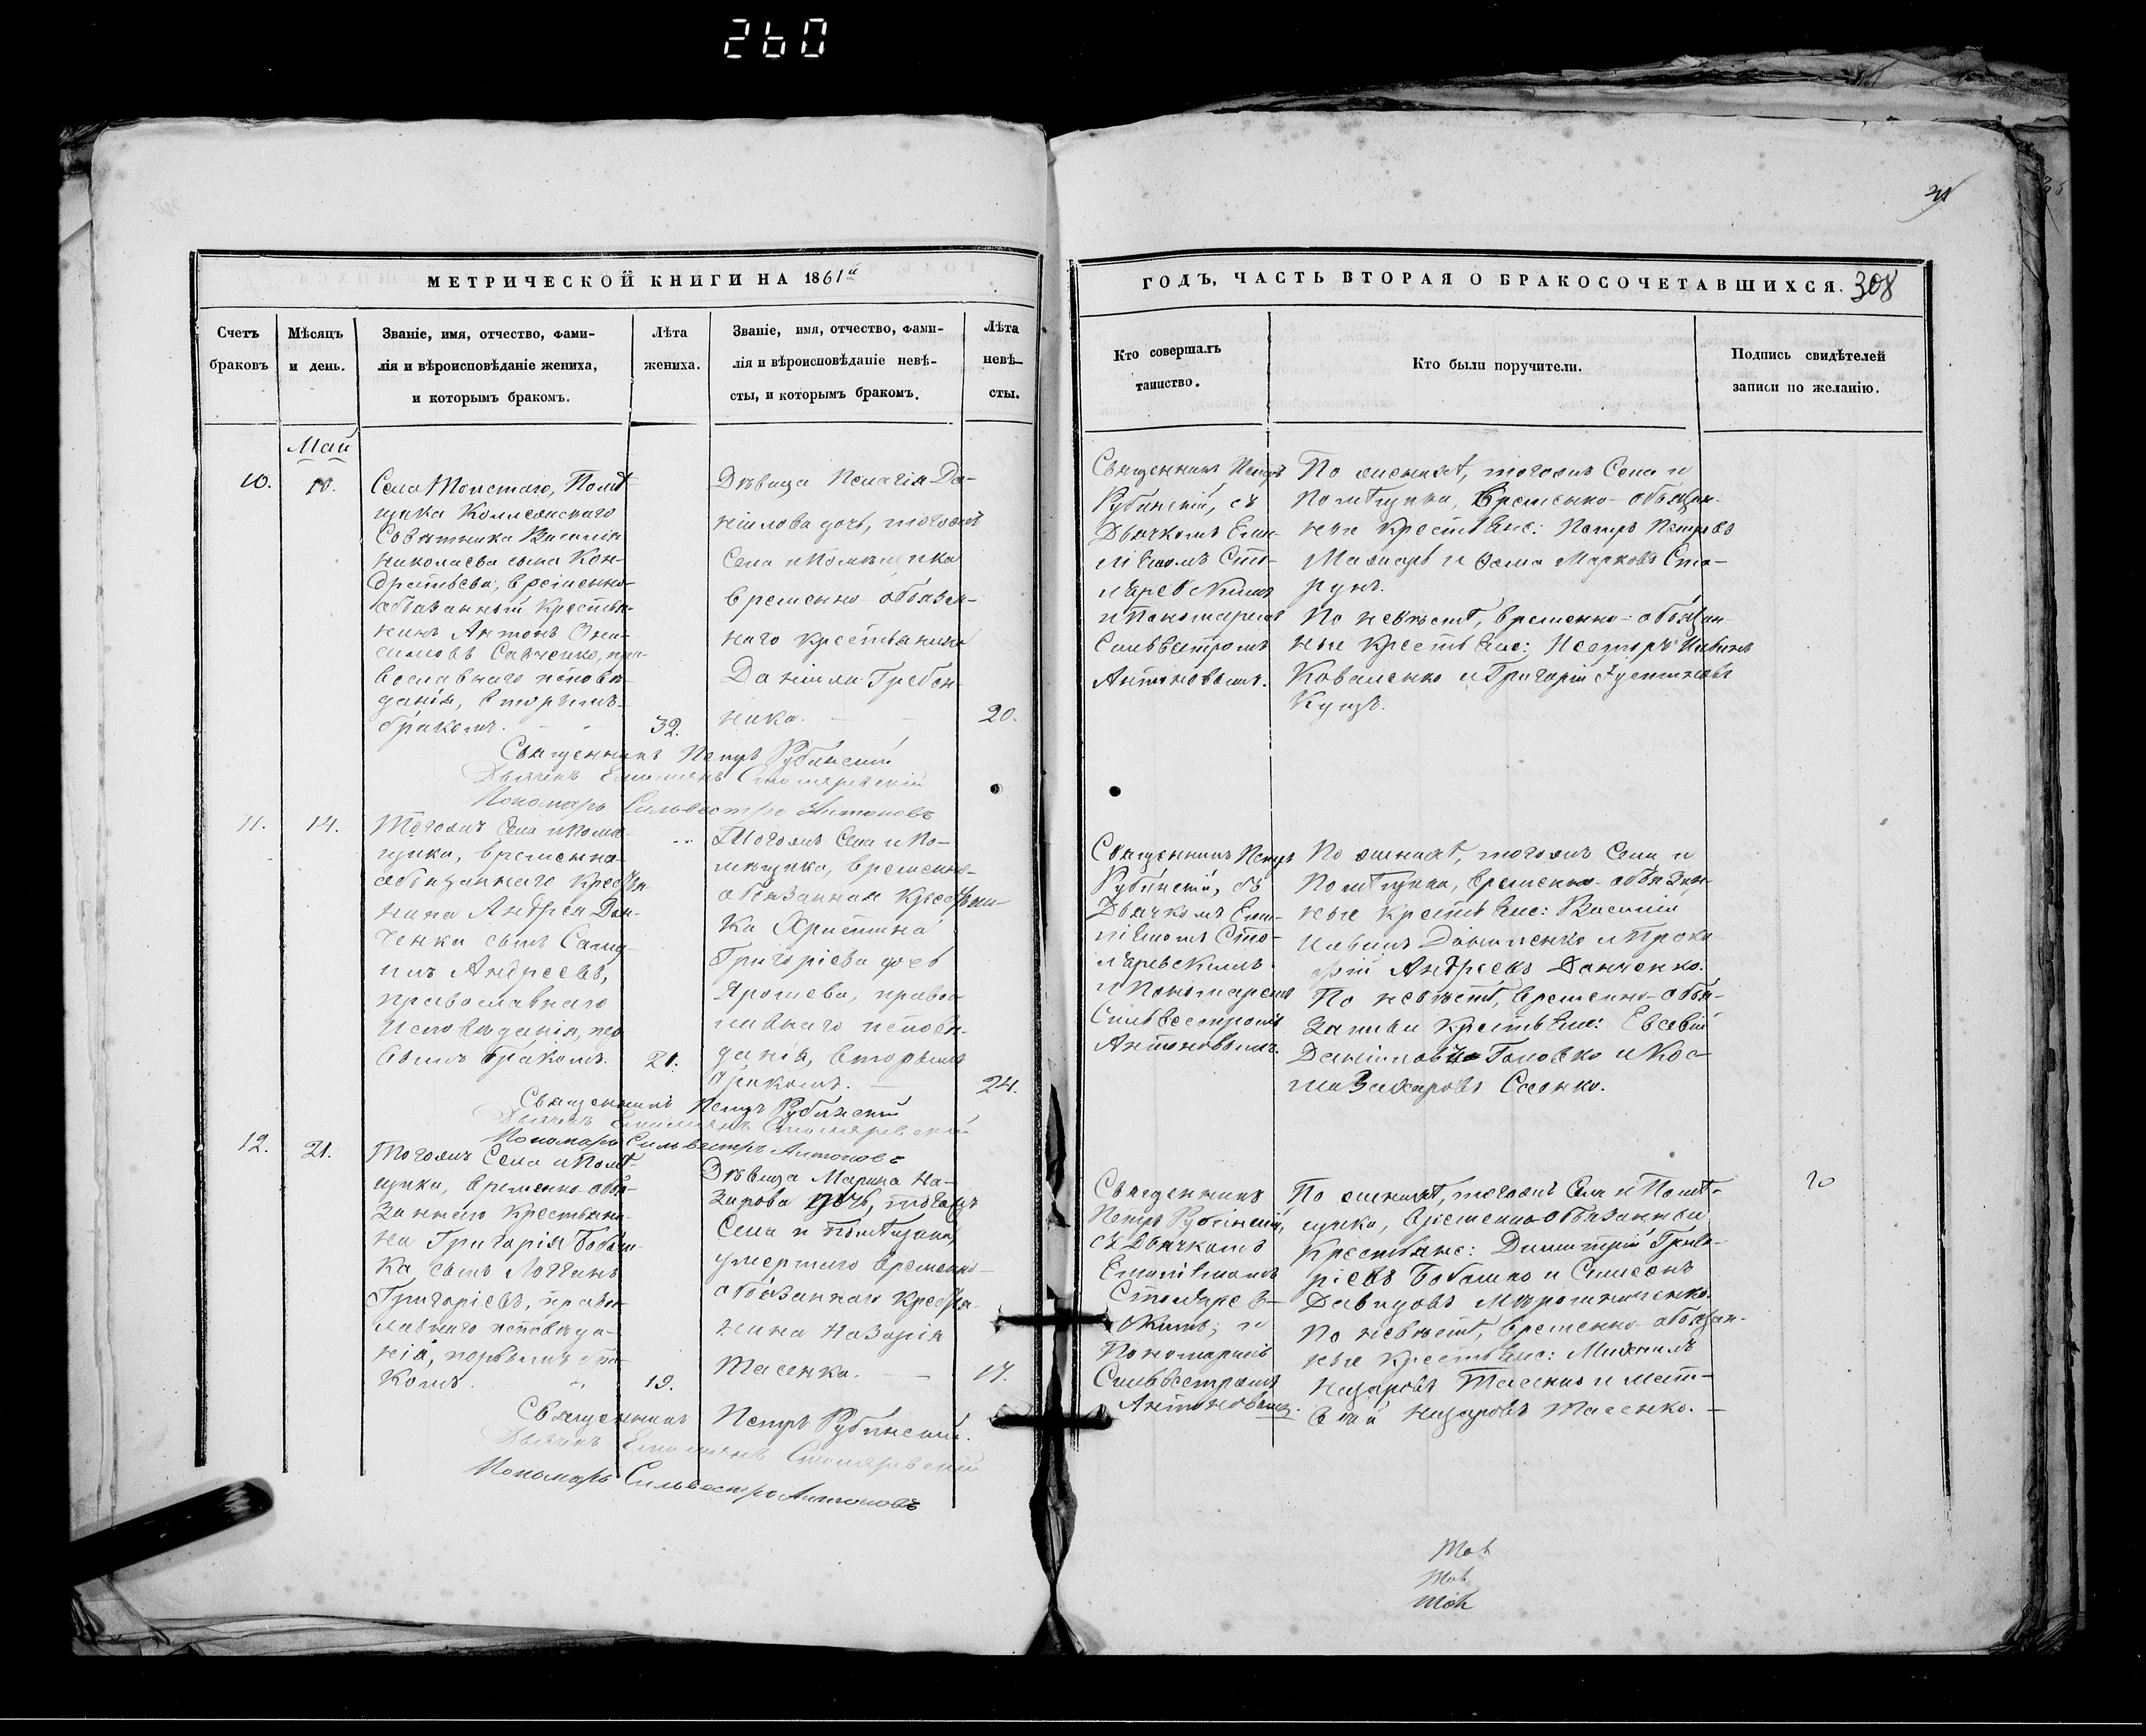 260
31
МЕТРИЧЕСКОЙ КНИГИ НА 1861й
Счетъ браковъ
Мѣсяцъ и день.
Званіе, имя, отчество, фами-
лія и вѣроисповѣданіе жениха,
и которымъ бракомъ.
Лѣта жениха.
Званіе, имя, отчество, фами-
лія и вѣроисповѣданіе невѣ-
сты, и которымъ бракомъ.
Лѣта невѣ-
сты.
Май
10.
10.
Села Толстаго, Помѣ-
щика Коллежскаго
Совѣтника Василія
Николаева сына Кон-
дратьева, временно-
обязанный крестья-
нинъ Антонъ Они-
симовъ Савченко, пра-
вославнаго исповѣ-
данія, вторымъ
бракомъ.
32.
Дѣвица Пелагія Да-
ніилова дочь, тогожъ
Села и Помѣщика
временно обязан-
наго крестьянина
Даніила Гребен-
ника.
20.
Священникъ Петръ Рубинскій
Дьячекъ Емиліянъ Столяревскій
Пономарь Сильвестръ Антоновъ
11.
14.
Тогожъ Села и Помѣ-
щика, временно-
обязаннаго крестья-
нина Андрея Дан-
ченка сынъ
Андреевъ,
православнаго
исповѣданія, пер-
вымъ бракомъ.
21.
Тогожъ Села и По-
мѣщика, временно-
обязанная крестьян-
ка Христина
Григоріева дочь
Ярошева, правос-
лавнаго исповѣ-
данія, вторымъ
бракомъ.
24.
Священникъ Петръ Рубинскій
Дьячекъ Емиліянъ Столяревскій
Пономарь Сильвестръ Антоновъ
12.
21.
Тогожъ Села и Помѣ-
щика, временно-обя-
заннаго крестьяни-
на Григорія Бобош-
ка сынъ Логгинъ
Григоріевъ, правос-
лавнаго исповѣда-
нія, первымъ бра-
комъ.
19.
Дѣвица Марина На-
зарова дочь, тогожъ
Села и помѣщика,
умершаго временно-
обязаннаго крестья-
нина Назарія
Тасенка.
17.
Священникъ Петръ Рубинскій.
Дьячекъ Емиліянъ Столяревскій
Пономарь Сильвестръ Антоновъ
ГОДЪ, ЧАСТЬ ВТОРАЯ О БРАКОСОЧЕТАВШИХСЯ.
308
Кто совершалъ
таинство.
Кто были поручители.
Подпись свидѣтелей
записи по желанію.
Священникъ Петръ
Рубинскій, съ
Дьячкомъ Еми-
ліяномъ Сто-
ляревскимъ
и Пономаремъ
Сильвестромъ
Антоновымъ.
По женихѣ, тогожъ Села и
Помѣщика, временно-обязан-
ные крестьяне: Петръ Петровъ
и Ѳома Марковъ Ста-
рунъ.
По невѣстѣ, временно-обязан-
ные крестьяне: Несторъ Ивановъ
Коваленко и Григорій Іустиновъ
Куцъ.
Священникъ Петръ
Рубинскій, съ
Дьячкомъ Еми-
ліяномъ Сто-
ляревскимъ
и Пономаремъ
Сильвестромъ
Антоновымъ.
По женихѣ, тогожъ Села и
Помѣщика, временно-обязан-
ные крестьяне: Василій
Ивановъ Даниленко и Проко-
фій Андреевъ Данченко.
По невѣстѣ, временно-обя-
занные крестьяне: Евсевій
Даніиловъ Головко и Кос-
ма Захаровъ Саенко.
Священникъ
Петръ Рубинскій,
съ Дьячкомъ
Емиліяномъ
Столярев-
скимъ, и
Пономаремъ
Сильвестромъ
Антоновымъ.
По женихѣ, тогожъ Села и Помѣ-
щика, временно-обязанные
крестьяне: Димитрій Григо-
ріевъ Бобошко и Симеонъ
Давидовъ Мѣрошниченко.
По невѣстѣ, временно-обязан-
ные крестьяне: Михаилъ
Назаровъ Тасенко и Мат-
вѣй Назаровъ Тасенко.